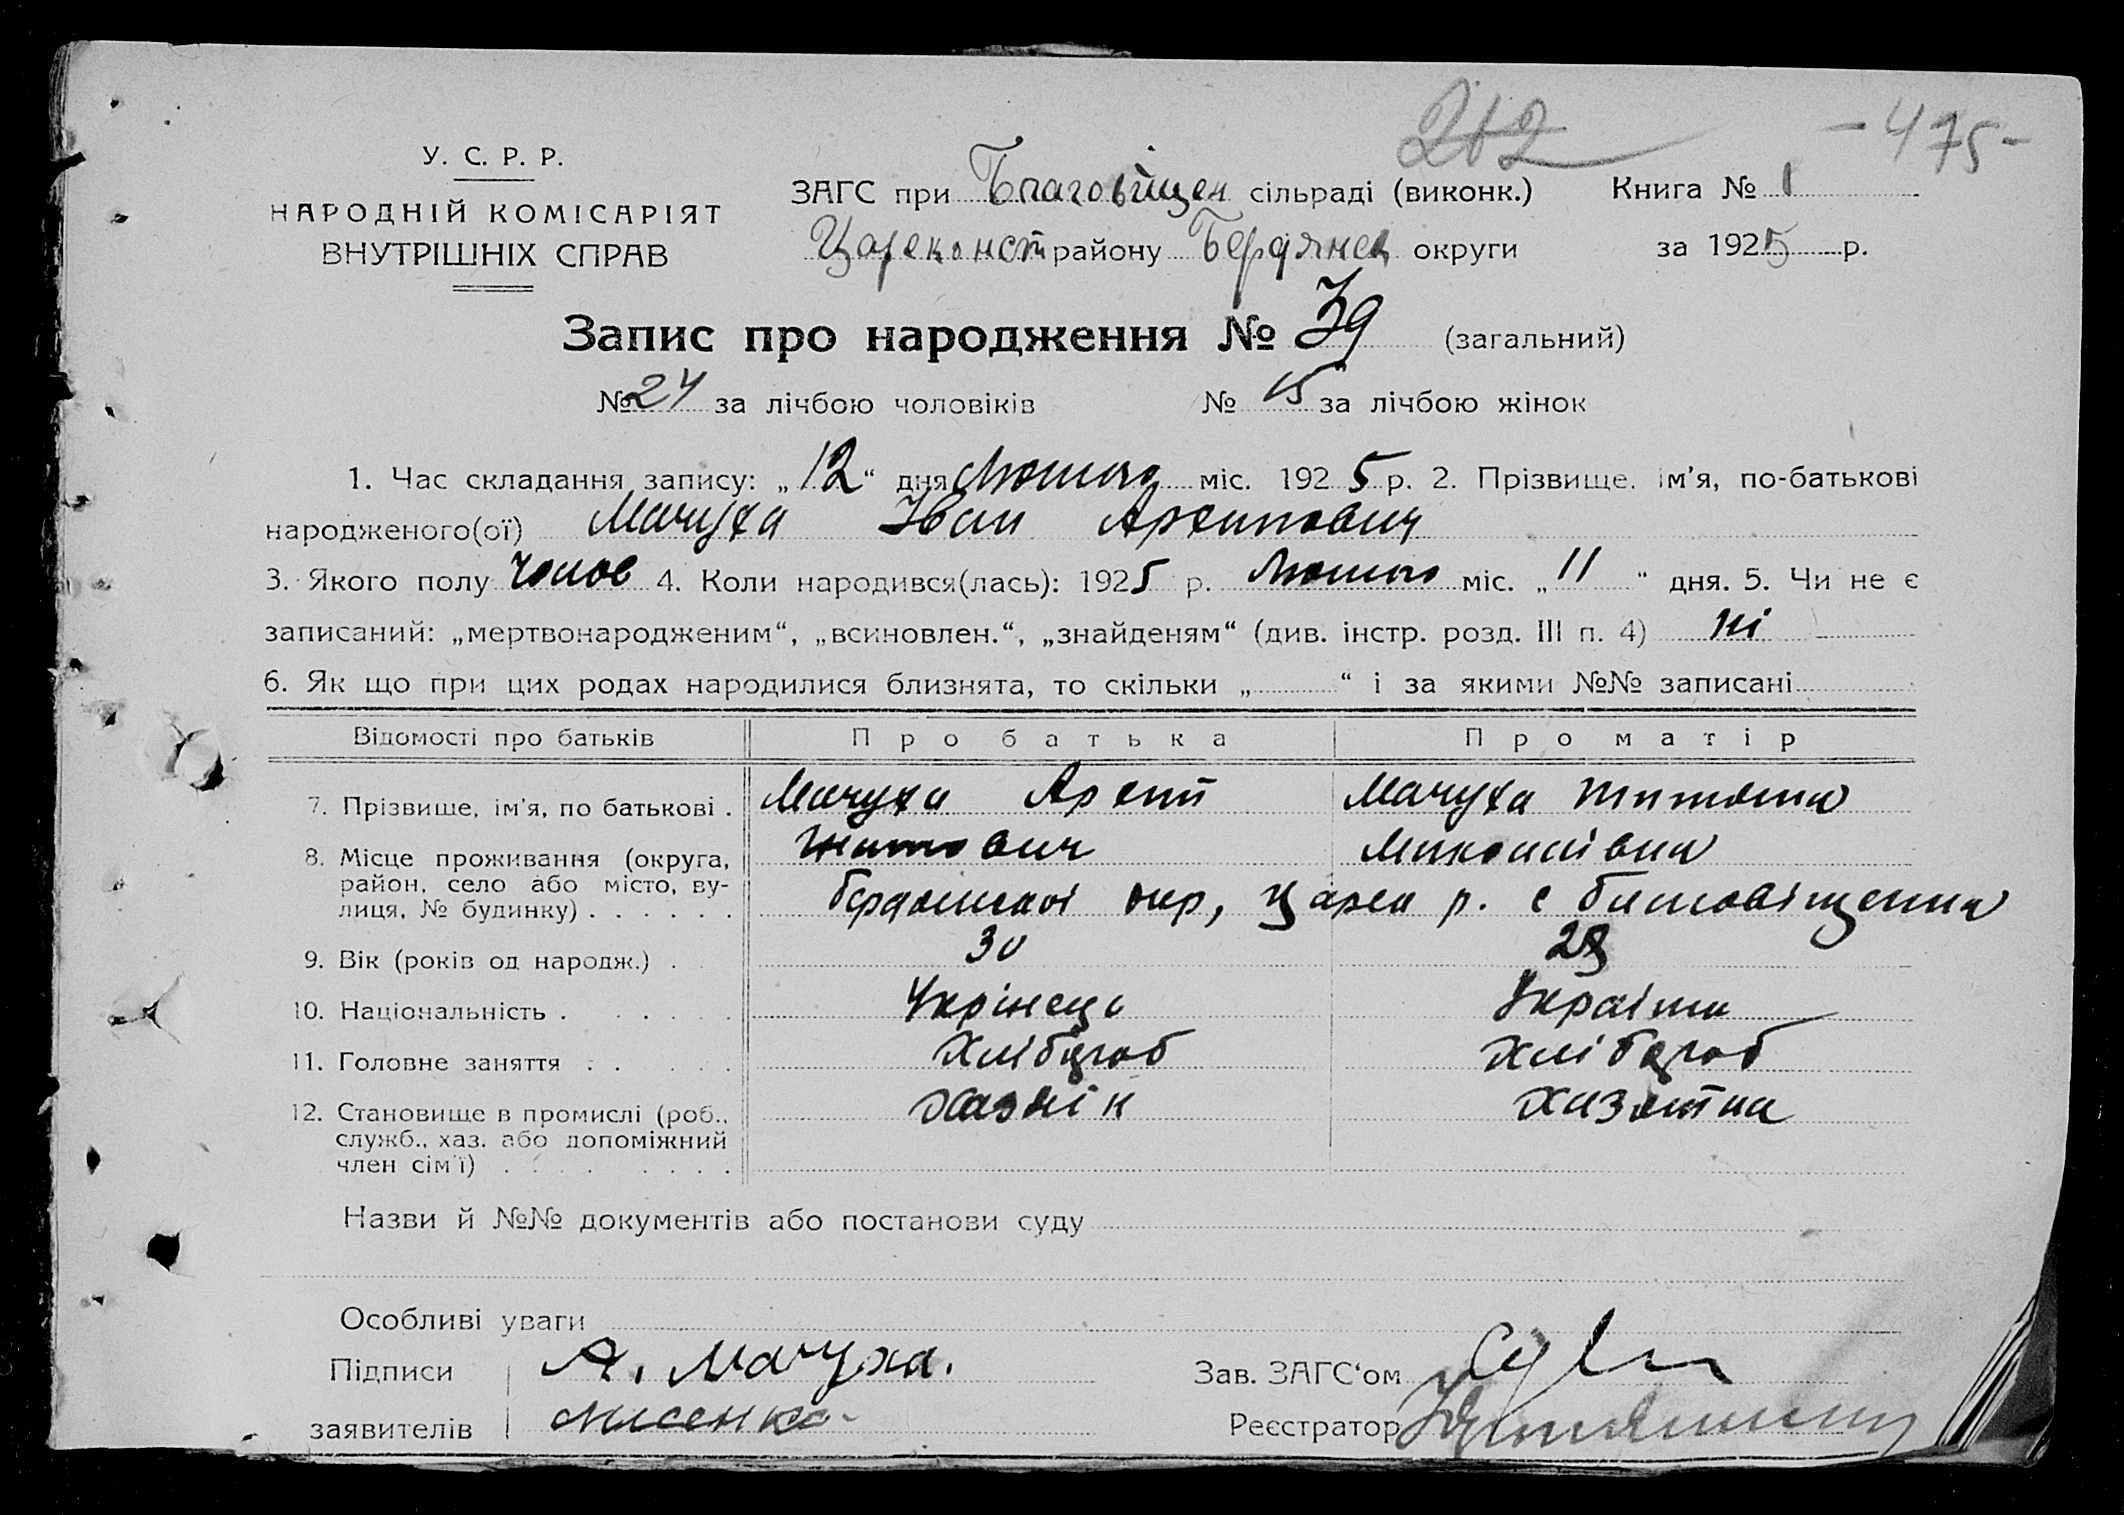 212 - 475 -
У. С. Р. Р.
НАРОДНІЙ КОМІСАРІЯТ
ВНУТРІШНІХ СПРАВ
ЗАГС при Благовіщен сільраді (виконк.) Книга № 1
Цареконст району Бердянск округи за 1925 р.
Запис про народження № 39 (загальний)
№ 24 за лічбою чоловіків № 15 за лічбою жінок
1. Час складання запису: „12“ дня Лютого міс. 1925 р. 2. Прізвище, ім'я, по-батькові
народженого(ої) Мачуха Іван Архипович
3. Якого полу Чолов 4. Коли народився(лась): 1925 р. Лютого міс. „11“ дня. 5. Чи не є
записаний: „мертвонародженим“, „всиновлен.“, „знайденям“ (див. інстр. розд. III п. 4) ні
6. Як що при цих родах народилися близнята, то скільки „ “ і за якими №№ записані
Відомості про батьків Про батька Про матір
7. Прізвище, ім'я, по батькові . Мачуха Архип Мачуха
Титович Миколаівна
8. Місце проживання (округа,
район, село або місто, ву-
лиця, № будинку) . . . . . . Бердянскоі окр, Царек р. с Благовіщенка
9. Вік (років од народж.) . 30
10. Національність . . . . . . Укрінець Украінка
11. Головне заняття . . . . . Хлібороб Хлібороб
12. Становище в промислі (роб., Хазяін Хазяйка
служб., хаз. або допоміжний
член сім'ї) . . . . . . . .
Назви й №№ документів або постанови суду
Особливі уваги
Підписи А. Мачуха.
заявителів Лисенко
Зав. ЗАГС‘ом
Реєстратор